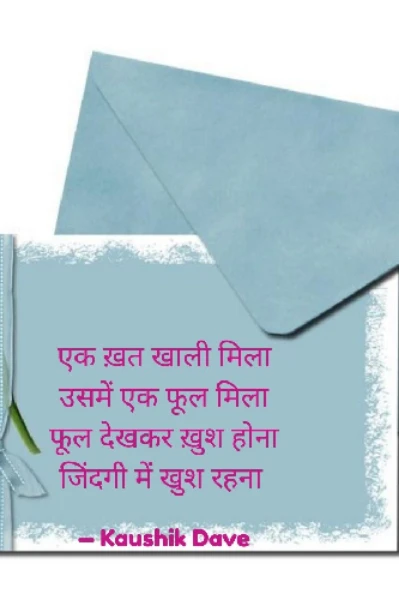 एक ख़त खाली मिला
उसमें एक फूल मिला
फूल देखकर ख़ुश होना
जिंदगी में खुश रहना
— Kaushik Dave